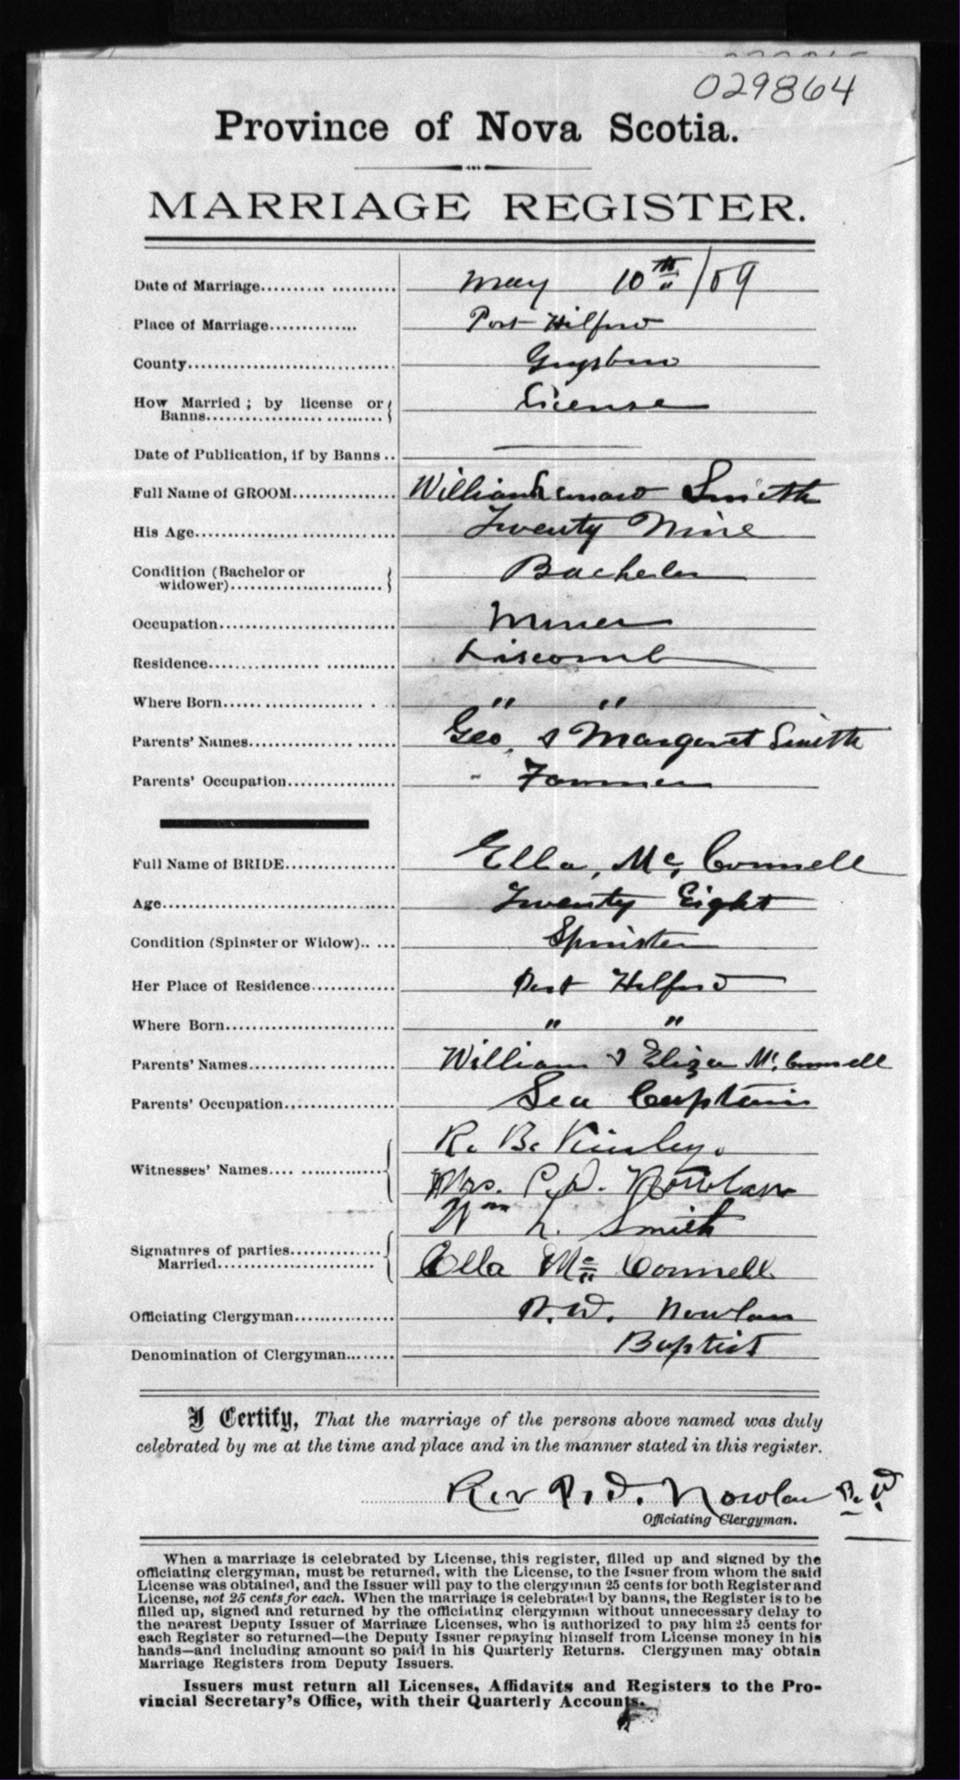 029864
Province of Nova Scotia.
MARRIAGE REGISTER.
Date of Marriage........... ........... May 10th /09
Place of Marriage.............. Port Hilford
County................................. Guysboro
How Married ; by license or
Banns.................... ......... License
Date of Publication, if by Banns .. ———
Full Name of GROOM................ William Lenard Smith
His Age................. ................ Twenty Nine
Condition (Bachelor or
widower)........................ Bachelor
Occupation............................ Miner
Residence................. ........... Liscomb
Where Born................... . .. " "
Parents' Names............... ....... Geo. & Margaret Smith
Parents' Occupation................. - Farmer
Full Name of BRIDE................. Ella, Mc Connell
Age..................................... Twenty Eight
Condition (Spinster or Widow).. .... Spinster
Her Place of Residence............. Port Hilford
Where Born........................... " "
Parents' Names....................... William & Eliza Mc Connell
Parents' Occupation................. Sea Captain
R. B. Kinley.
Witnesses' Names.... ...............
Mrs. P. D. Nowlan
Wm L. Smith
Signatures of parties...............
Married........................... Ella Mc Connell
Officiating Clergyman............... P. D. Nowlan
Denomination of Clergyman........ Baptist
I Certify, That the marriage of the persons above named was duly
celebrated by me at the time and place and in the manner stated in this register.
Rev P. D. Nowlan
Officiating Clergyman.
When a marriage is celebrated by License, this register, filled up and signed by the
officiating clergyman, must be returned, with the License, to the Issuer from whom the said
License was obtained, and the Issuer will pay to the clergyman 25 cents for both Register and
License, not 25 cents for each. When the marriage is celebrated by banns, the Register is to be
filled up, signed and returned by the officiating clergyman without unnecessary delay to
the nearest Deputy Issuer of Marriage Licenses, who is authorized to pay him 25 cents for
each Register so returned—the Deputy Issuer repaying himself from License money in his
hands—and including amount so paid in his Quarterly Returns. Clergymen may obtain
Marriage Registers from Deputy Issuers.
Issuers must return all Licenses, Affidavits and Registers to the Pro-
vincial Secretary's Office, with their Quarterly Accounts.